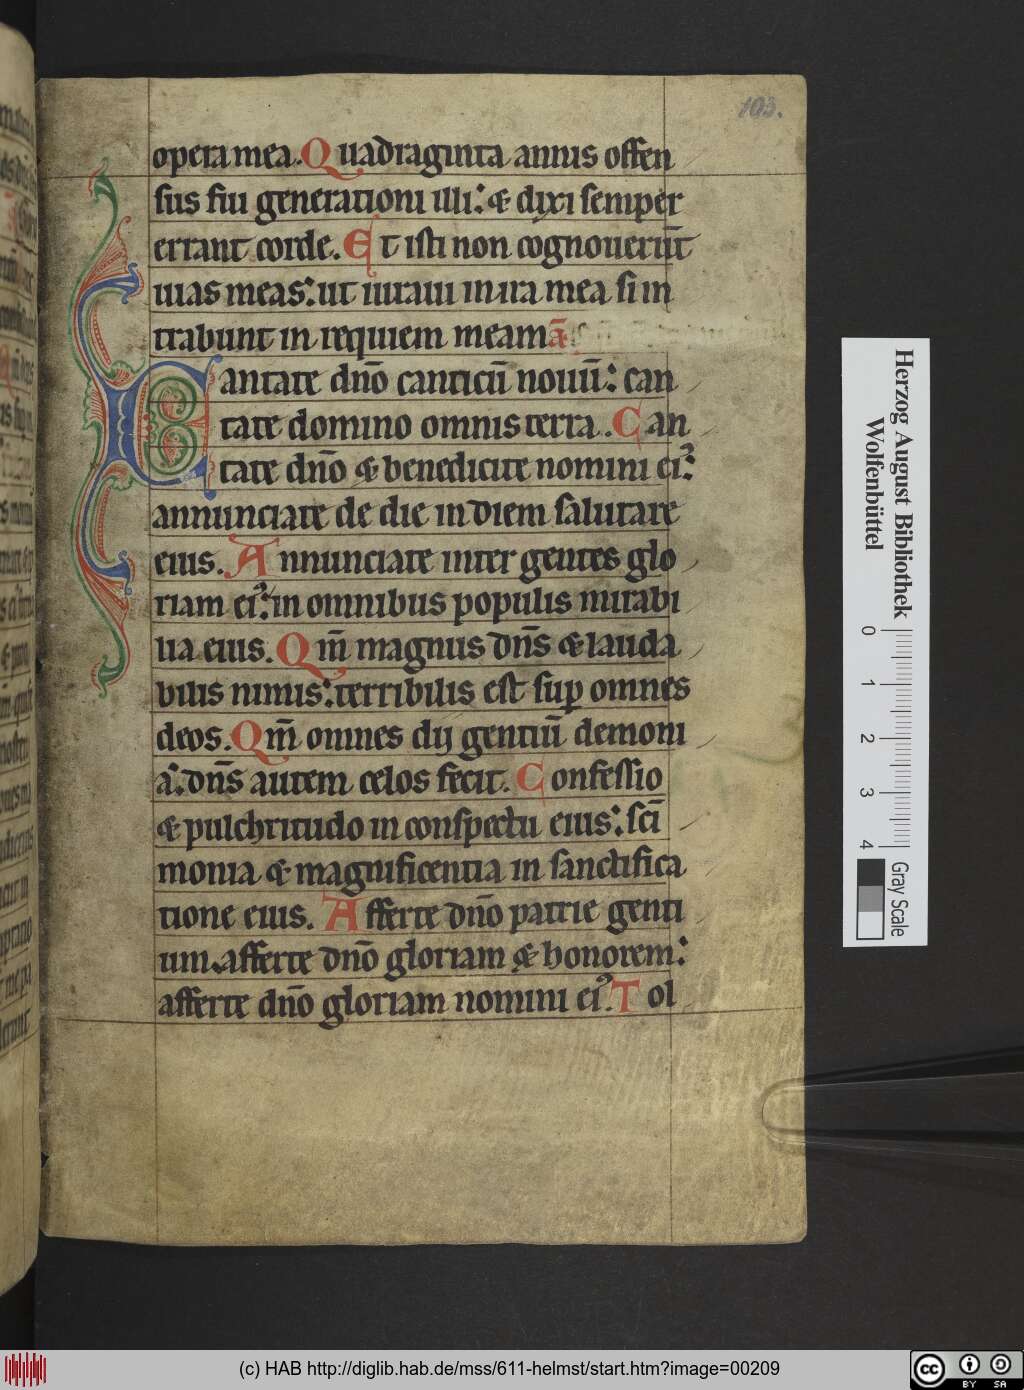 103.
opera mea. Quadraginta annis offen
sus fui generationi illi: & dixi semper
errant corde. Et isti non cognouerūt
uias meas: ut iuraui in ira mea si in
trabunt in requiem meam ā
Cantate dn̄o canticū nouū: can
tate domino omnis terra. Can
tate dn̄o & benedicite nomini eiꝰ:
annunciate de die in diem salutare
eius. Annunciate inter gentes glo
riam eiꝰ: in omnibus populis mirabi
lia eius. Qm̄ magnus dn̄s & lauda
bilis nimis: terribilis est sup omnes
deos. Qm̄ omnes dij gentiū demoni
a: dn̄s autem celos fecit. Confessio
& pulchritudo in conspectu eius: sc̄i
monia & magnificentia in sanctifica
tione eius. Afferte dn̄o patrie genti
um. afferte dn̄o gloriam & honorem:
afferte dn̄o gloriam nomini eiꝰ. Tol
Herzog August Bibliothek
Wolfenbüttel
0 1 2 3 4
Gray Scale
(c) HAB http://diglib.hab.de/mss/611-helmst/start.htm?image=00209
cc BY SA